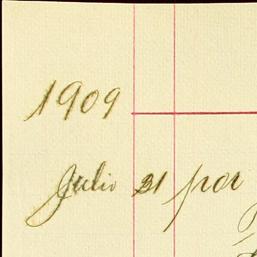 1909
Julio 21 por